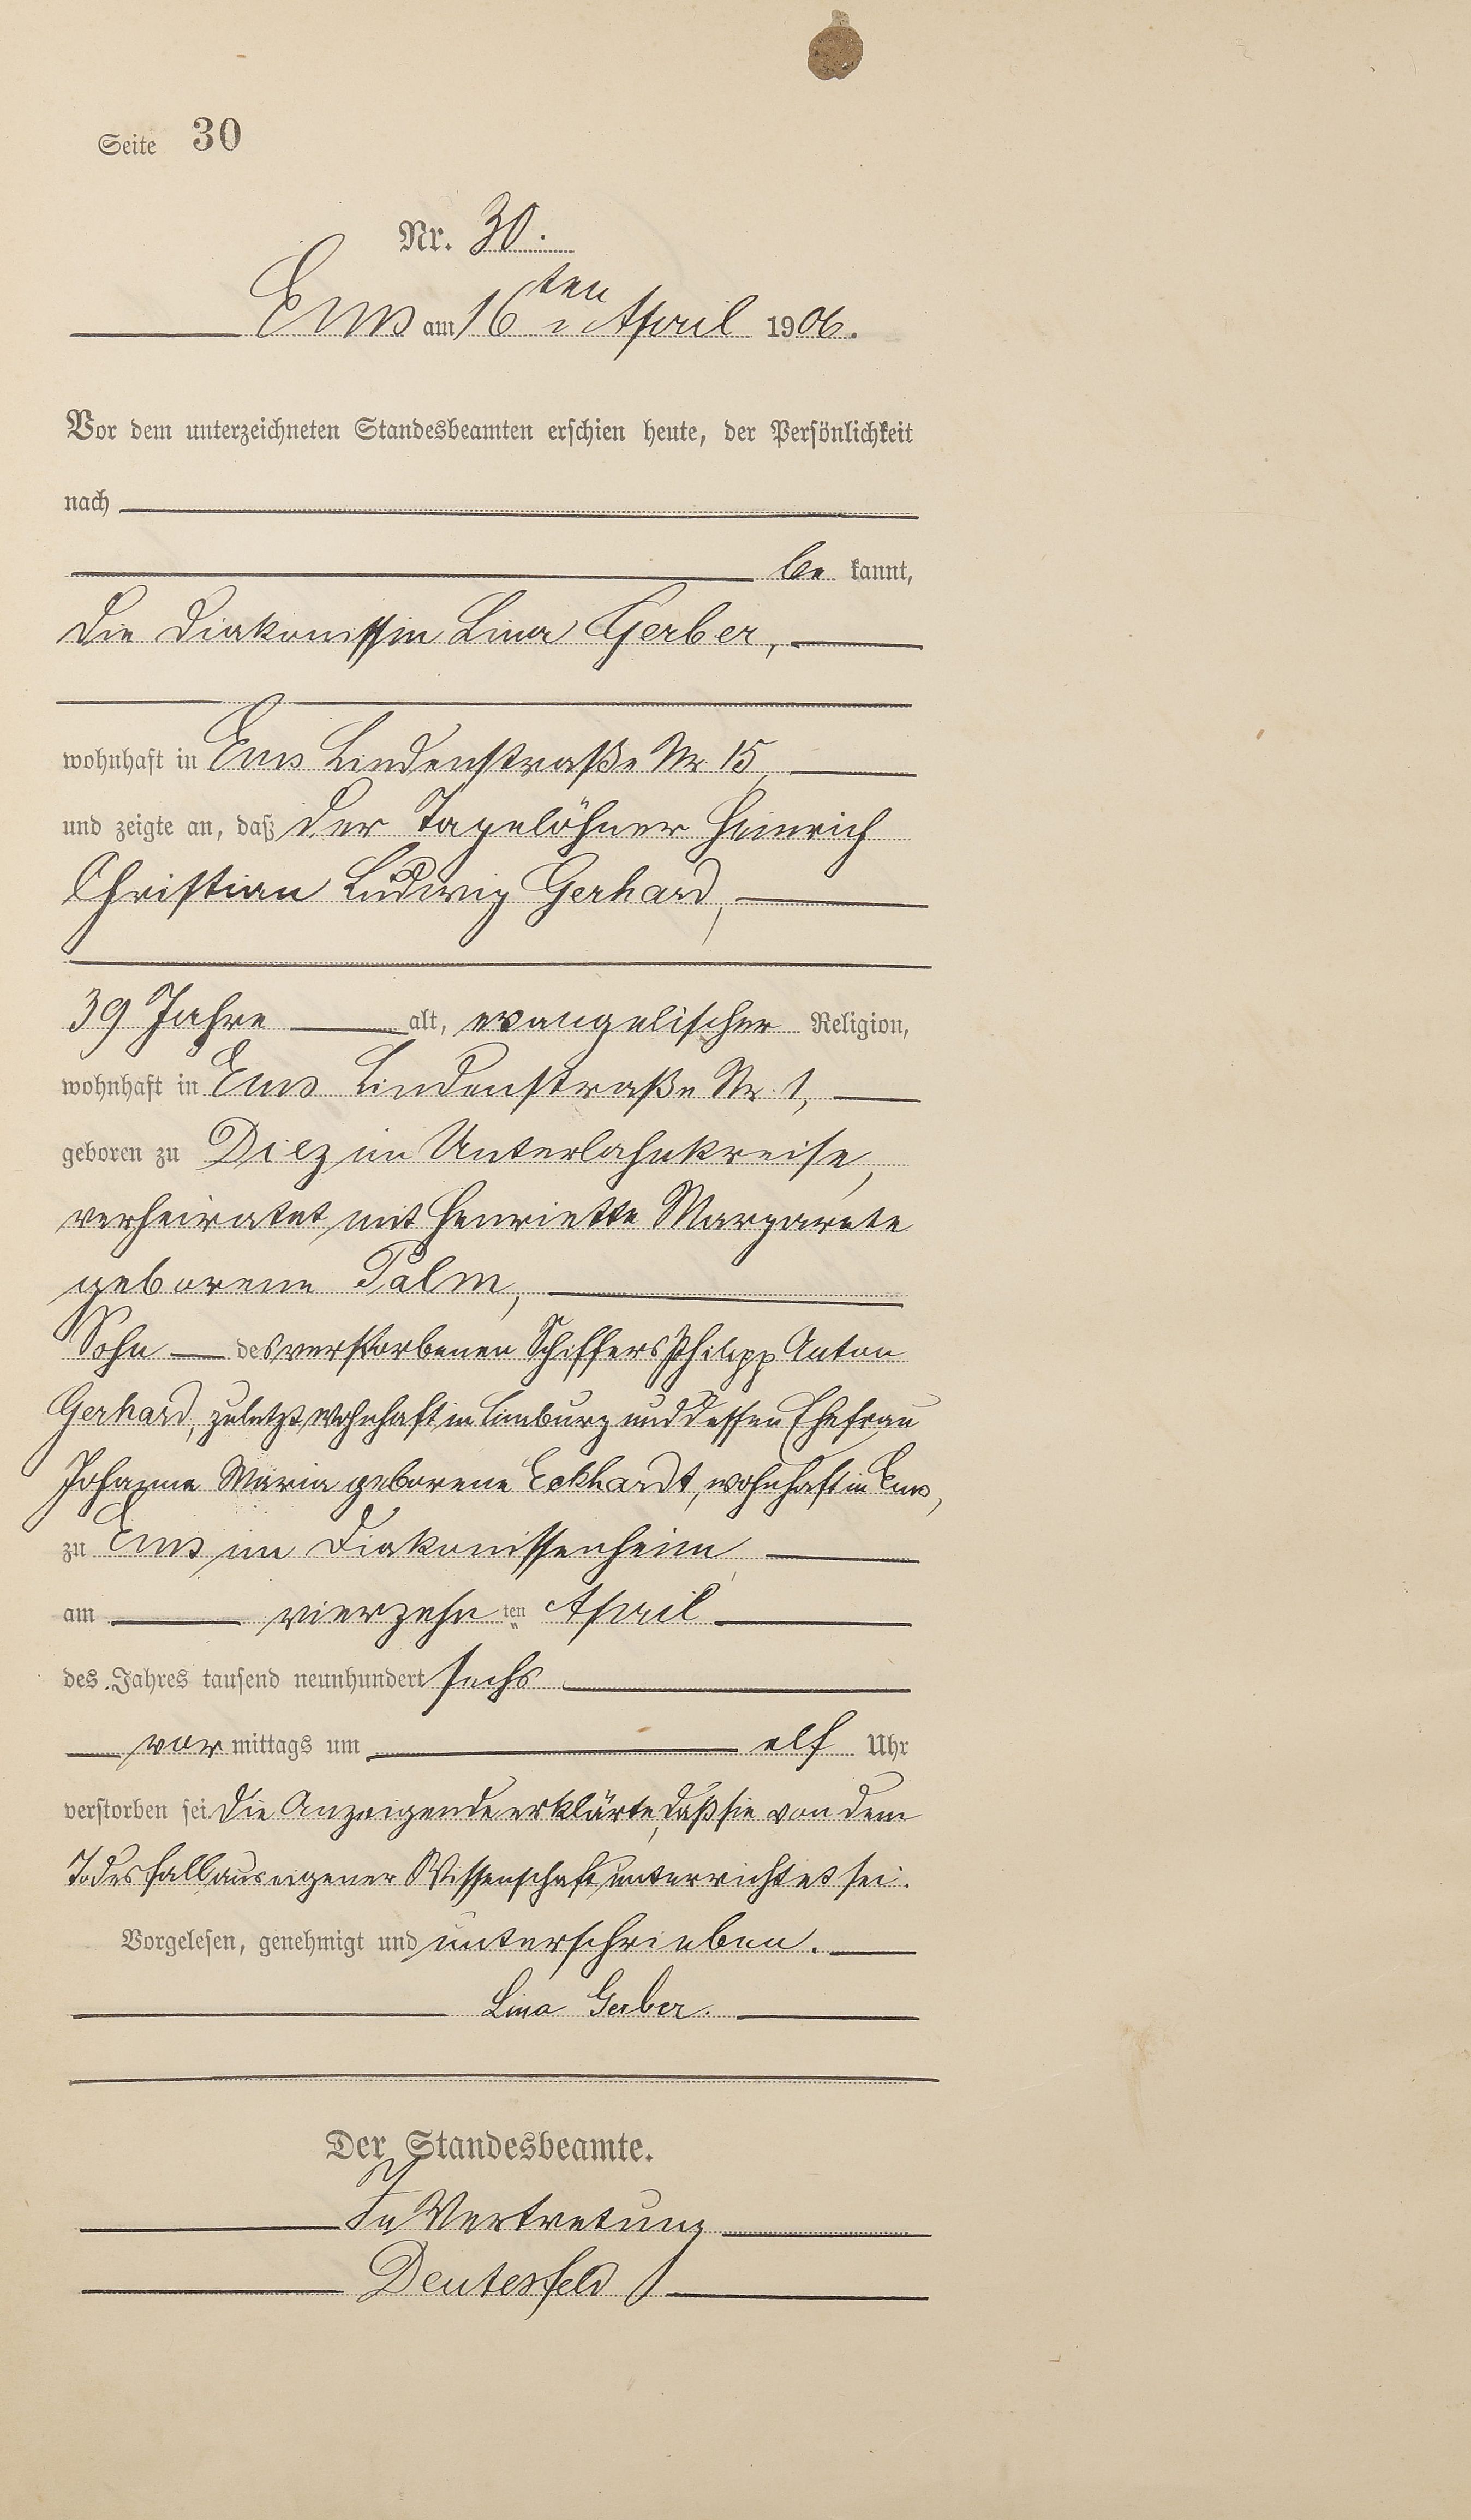 Seite 30
Nr. 30.
Ems am 16ten April 1906.
Vor dem unterzeichneten Standesbeamten erschien heute, der Persönlichkeit
nach
be kannt,
die Diakonissin Lina Gerber,
wohnhaft in Ems Lindenstraße Nr. 15,
und zeigte an, daß der Tagelöhner Heinrich
Christian Ludwig Gerhard,
39 Jahre alt, evangelischer Religion,
wohnhaft in Ems Lindenstraße Nr. 1,
geboren zu Diez im Unterlahnkreise,
verheiratet mit Henriette Margarete
geborene Palm,
Sohn des verstorbenen Schiffers Philipp Anton
Gerhard, zuletzt wohnhaft in Limburg und dessen Ehefrau
Johanna Maria geborene Eckhardt, wohnhaft in Ems,
zu Ems im Diakonissenheim
am vierzehn ten April
des Jahres tausend neunhundert sechs
vor mittags um elf Uhr
verstorben sei. Die Anzeigende erklärte, daß sie von dem
Todesfall aus eigener Wissenschaft unterrichtet sei.
Vorgelesen, genehmigt und unterschrieben.
Lina Gerber.
Der Standesbeamte.
In Vertretung
Deutesfeld